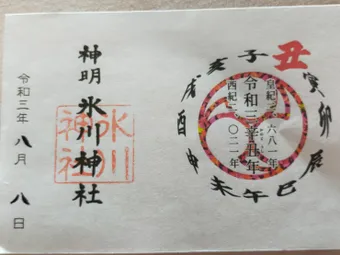 子
丑
寅
卯
辰
巳
午
未
申
酉
戌
亥
皇紀二六八一年
令和三辛丑年
西紀二〇二一年
神明 氷川神社
氷川
神社
令和三年 八月 八日